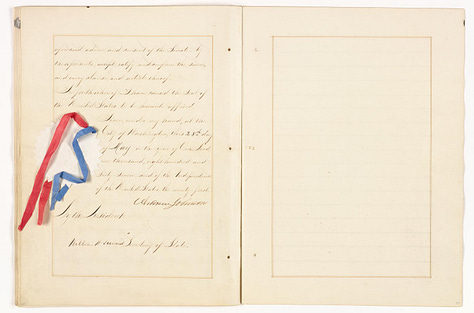 advice and consent of the Senate
ratify and confirm the same
and every clause and article thereof.
In testimony I have caused the Seal of
the United States to be hereunto affixed
Given under my hand, at the
City of Washington, this 28th day
of May in the year of Our Lord
one thousand, eight hundred and
sixty seven and of the Independence
of the United States the ninety first
Andrew Johnson
By the President
William H Seward Secretary of State